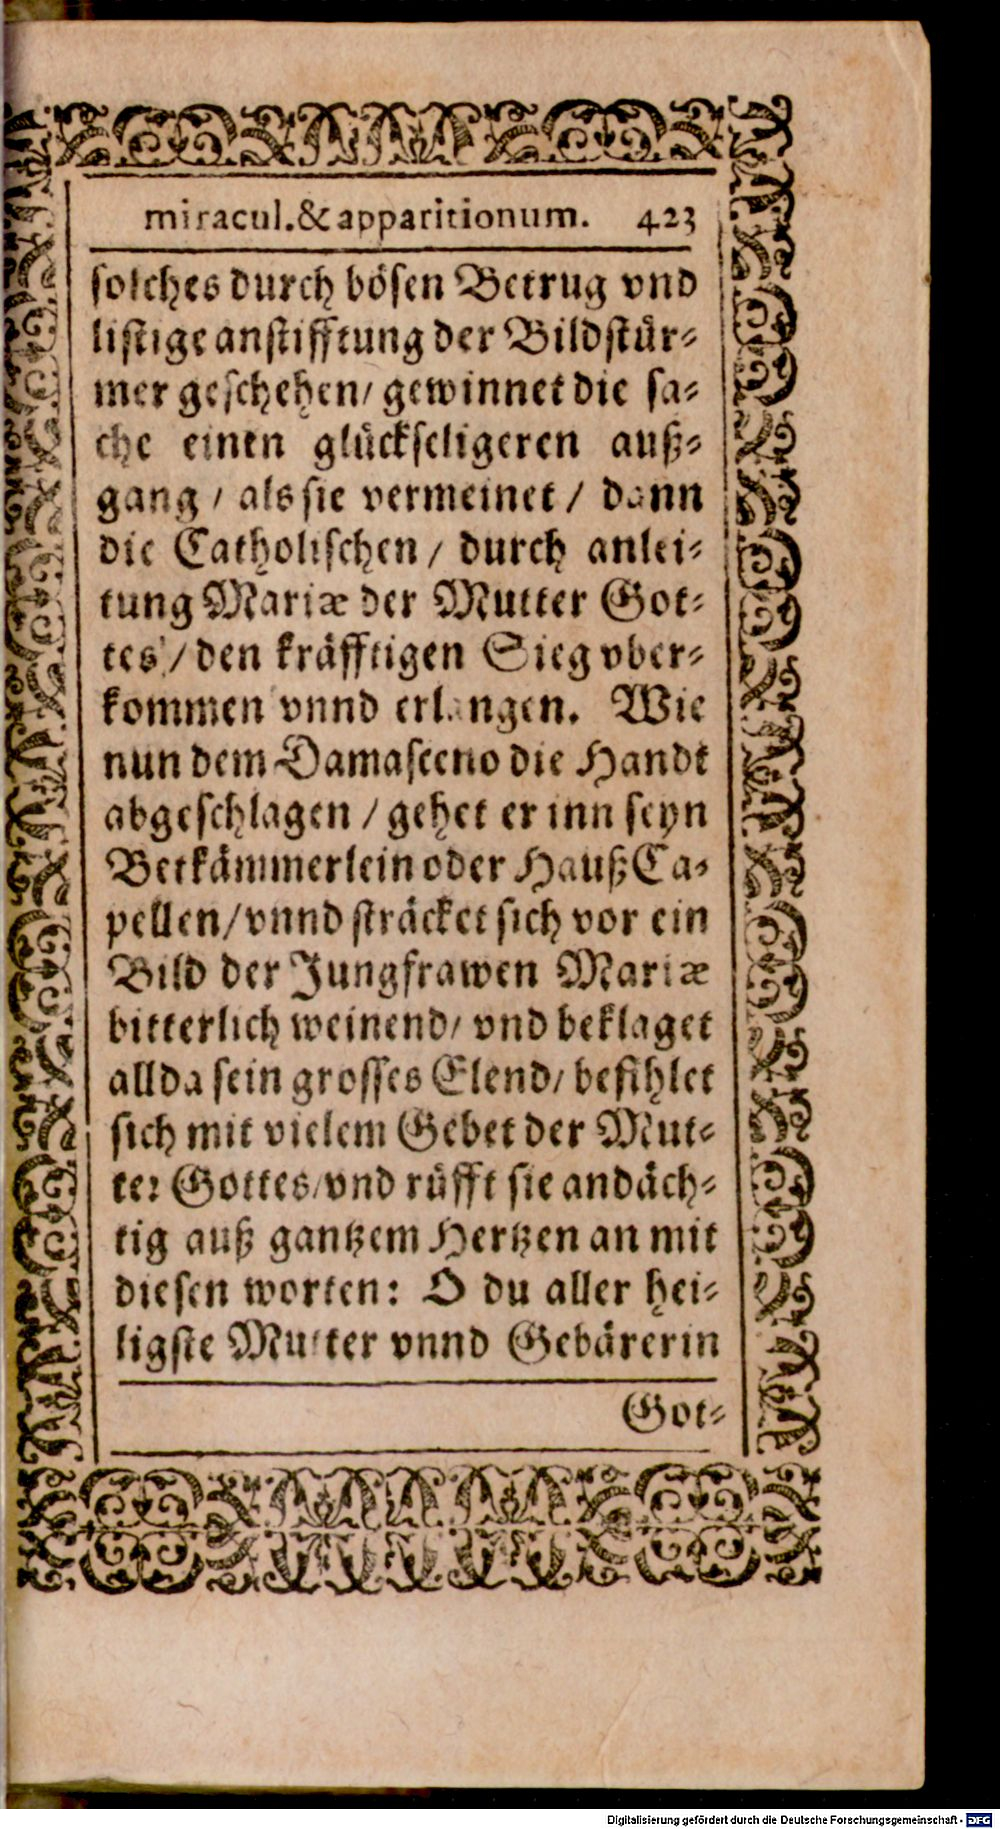 miracul. & apparitionum. 423
solches durch bösen Betrug vnd
listige anstifftung der Bildstür-
mer geschehen/ gewinnet die sa-
che einen glückseligeren auß-
gang / als sie vermeinet / dann
die Catholischen / durch anlei-
tung Mariæ der Mutter Got-
tes / den kräfftigen Sieg vber-
kommen vnnd erlangen. Wie
nun dem Damasceno die Handt
abgeschlagen / gehet er inn seyn
Betkämmerlein oder Hauß Ca-
pellen/ vnnd sträcket sich vor ein
Bild der Jungfrawen Mariæ
bitterlich weinend/ vnd beklaget
allda sein grosses Elend/ befihlet
sich mit vielem Gebet der Mut-
ter Gottes/ vnd rüfft sie andäch-
tig auß gantzem Hertzen an mit
diesen worten: O du aller hei-
ligste Mutter vnnd Gebärerin
Got-
Digitalisierung gefördert durch die Deutsche Forschungsgemeinschaft - DFG